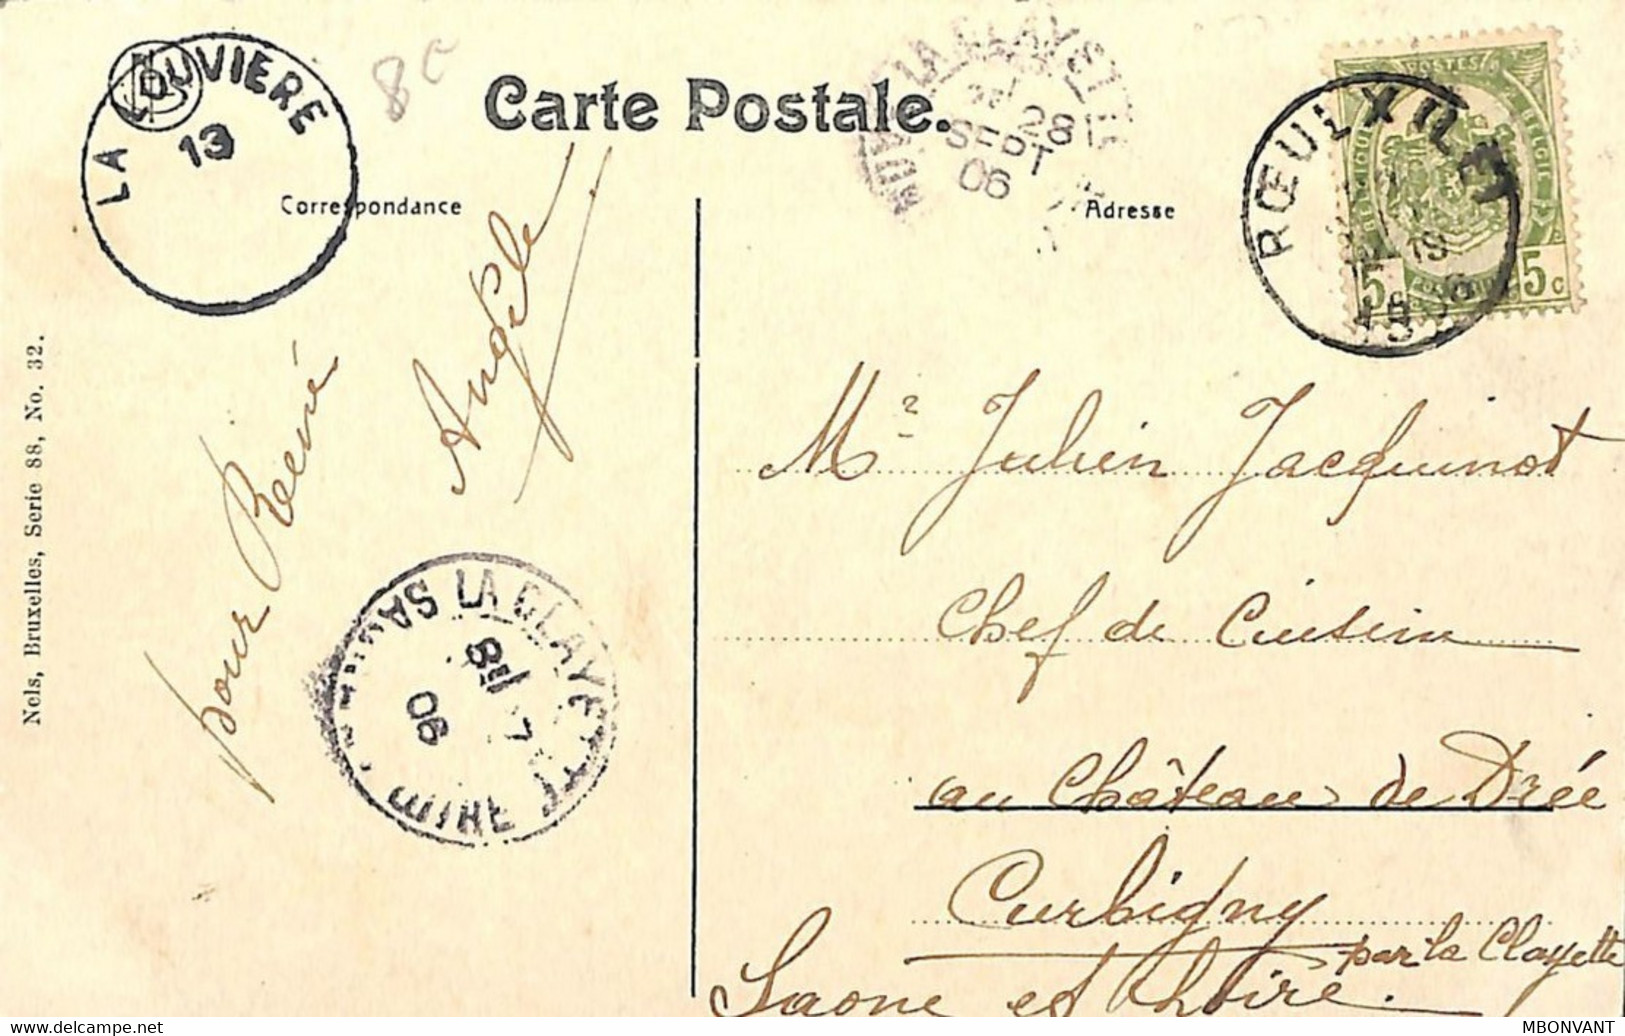 LA LOUVIERE
13
8c
Carte Postale.
LA CLAYETTE
28
SEPT
06
POSTES
BELGIQUE
BELGIE
5
5c
RŒULX
19
Correspondance
Adresse
Angèle
pour Reéné
Nels, Bruxelles, Serie 88, No. 32.
LA CLAYETTE
SAONE
LOIRE
06
Mr Julien Jacquinot
Chef de Cuisine
au Château de Drée
Curbigny
par la Clayette
Saone et Loire.
MBONVANT